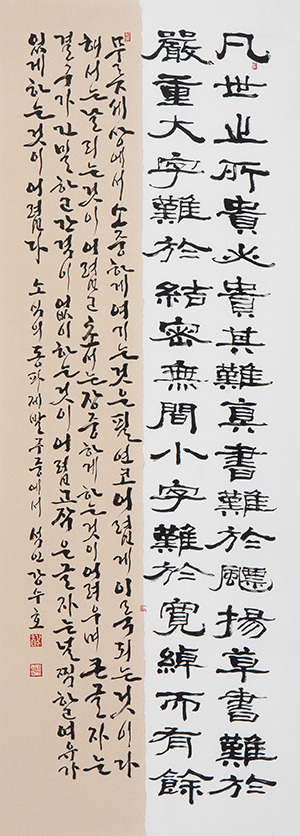 凡世之所貴必貴其難真書難於飄揚草書難於
嚴重大字難於結密無間小字難於寬綽而有餘
무릇 세상에서 소중하게 여기는 것은 필연코 어렵게 이룩되는 것이다
해서는 것이 어렵고 초서는 장중하게 하는 것이 어려우며 큰 글자는
결구가 긴밀하고 간격이 없이 하는 것이 어렵고 작은 글자는 넓찍한 여유가
있게 하는 것이 어렵다 소식의 동파제발 강수호